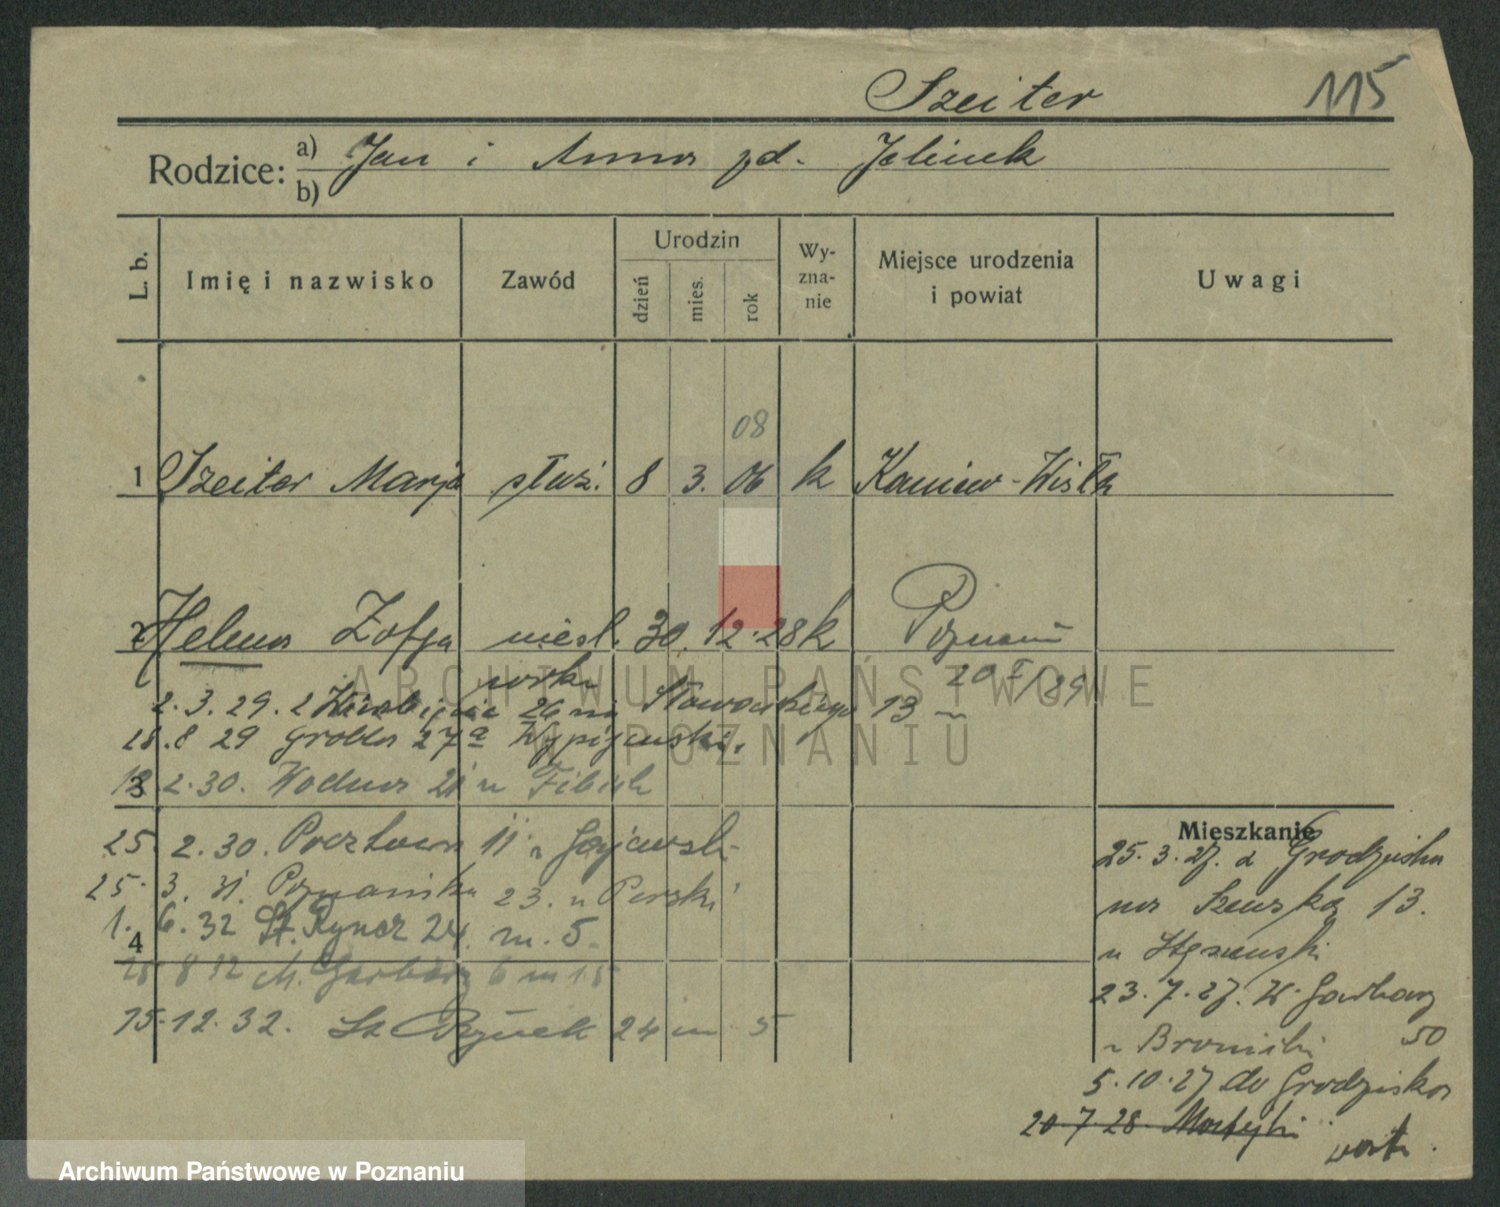 Szeiter 115
Rodzice: a) Jan i Anna zd. Jelinek
b)
L. b. Imię i nazwisko Zawód Urodzin dzień mies. rok Wy-zna-nie Miejsce urodzenia i powiat Uwagi
08
1 Szeiter Marja służ. 8 3. 06 k Kamiew-Wisłk
2 Helena Zofja niesl. 30. 12. 28 k Poznań
20 I/89
2. 3. 29. 26 Słowackiego 13
28. 8 29 Grobla 27a Wypijewski.
3 2. 30. Wodna 21 u
25 2. 30. Pocztowa 11 u Gajewski
25. 3. 31. Poznańska 23. u Perski
1. 6. 32 St. Rynek 24. m. 5.
4
25 8 32 M. Garbary 6 m 15
15. 12. 32. St Rynek 24 m 5
Mieszkanie
25. 3. 27. z Grodziska
na Szewską 13.
u
23. 7. 27. W. Garbary
50
u Broniski
5. 10. 27 do Grodziska
20 7 28
ARCHIWUM PAŃSTWOWE
W POZNANIU
Archiwum Państwowe w Poznaniu